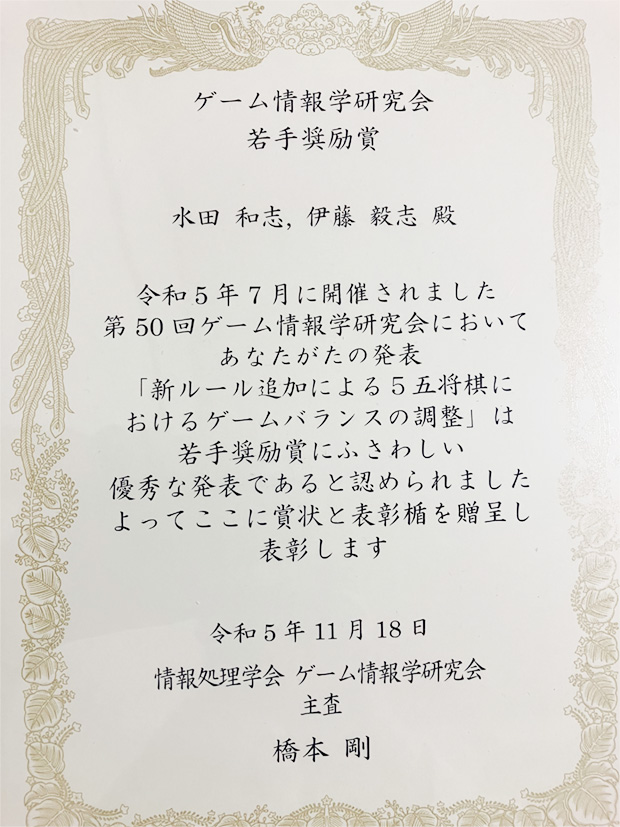 ゲーム情報学研究会
若手奨励賞
水田 和志, 伊藤 毅志 殿
令和5年7月に開催されました
第50回ゲーム情報学研究会において
あなたがたの発表
「新ルール追加による5五将棋に
おけるゲームバランスの調整」は
若手奨励賞にふさわしい
優秀な発表であると認められました
よってここに賞状と表彰楯を贈呈し
表彰します
令和5年11月18日
情報処理学会 ゲーム情報学研究会
主査
橋本 剛